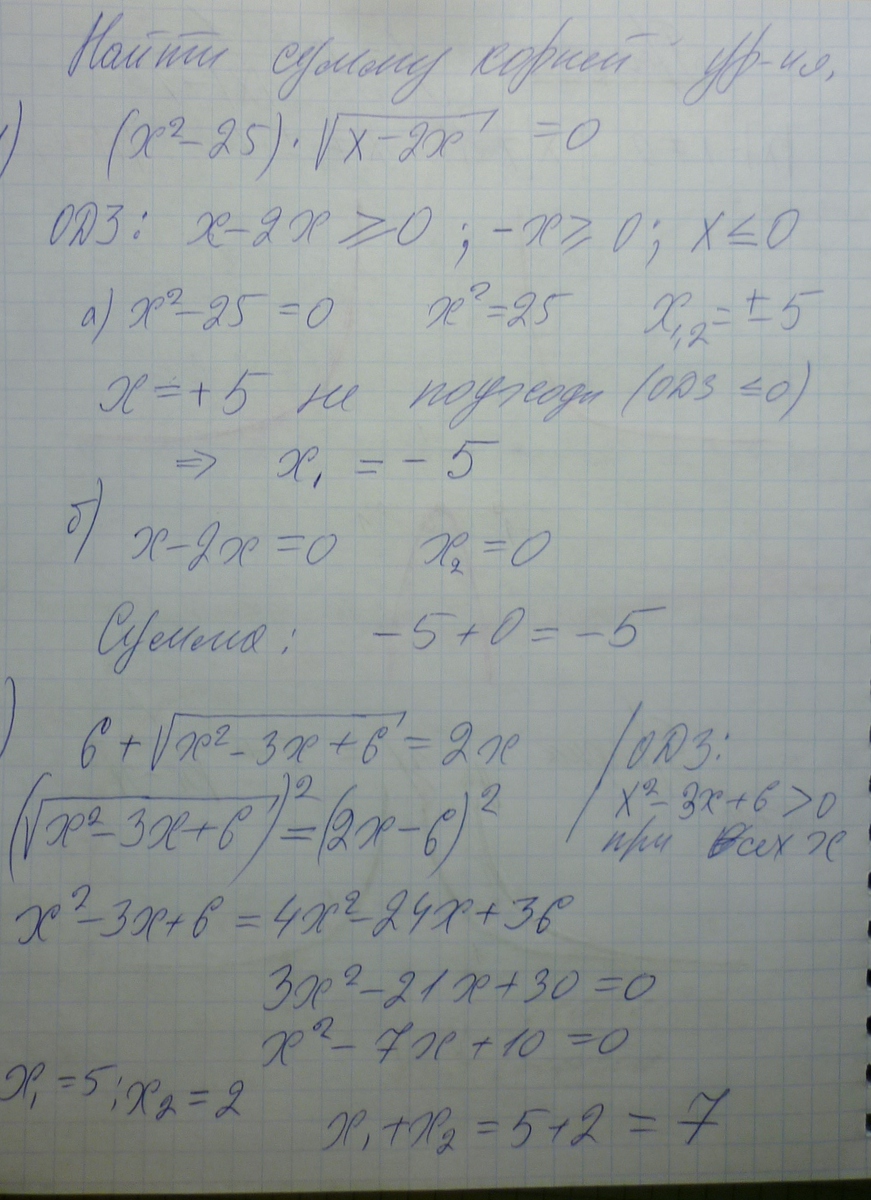 Найти сумму корней ур-ия.
) (x²-25)·√(x-2x) =0
ОДЗ: x-2x ⩾0 ; -x⩾0; x≤0
а) x²-25=0 x²=25 x₁,₂=±5
x=+5 не подходи (ОДЗ ≤0)
⇒ x₁ = -5
б) x-2x=0 x₂=0
Сумма: -5+0=-5
) 6+√(x²-3x+6)=2x / ОДЗ:
(√(x²-3x+6))²=(2x-6)² x²-3x+6>0
при всех x
x²-3x+6=4x²-24x+36
3x²-21x+30=0
x²-7x+10=0
x₁=5; x₂=2
x₁+x₂=5+2=7